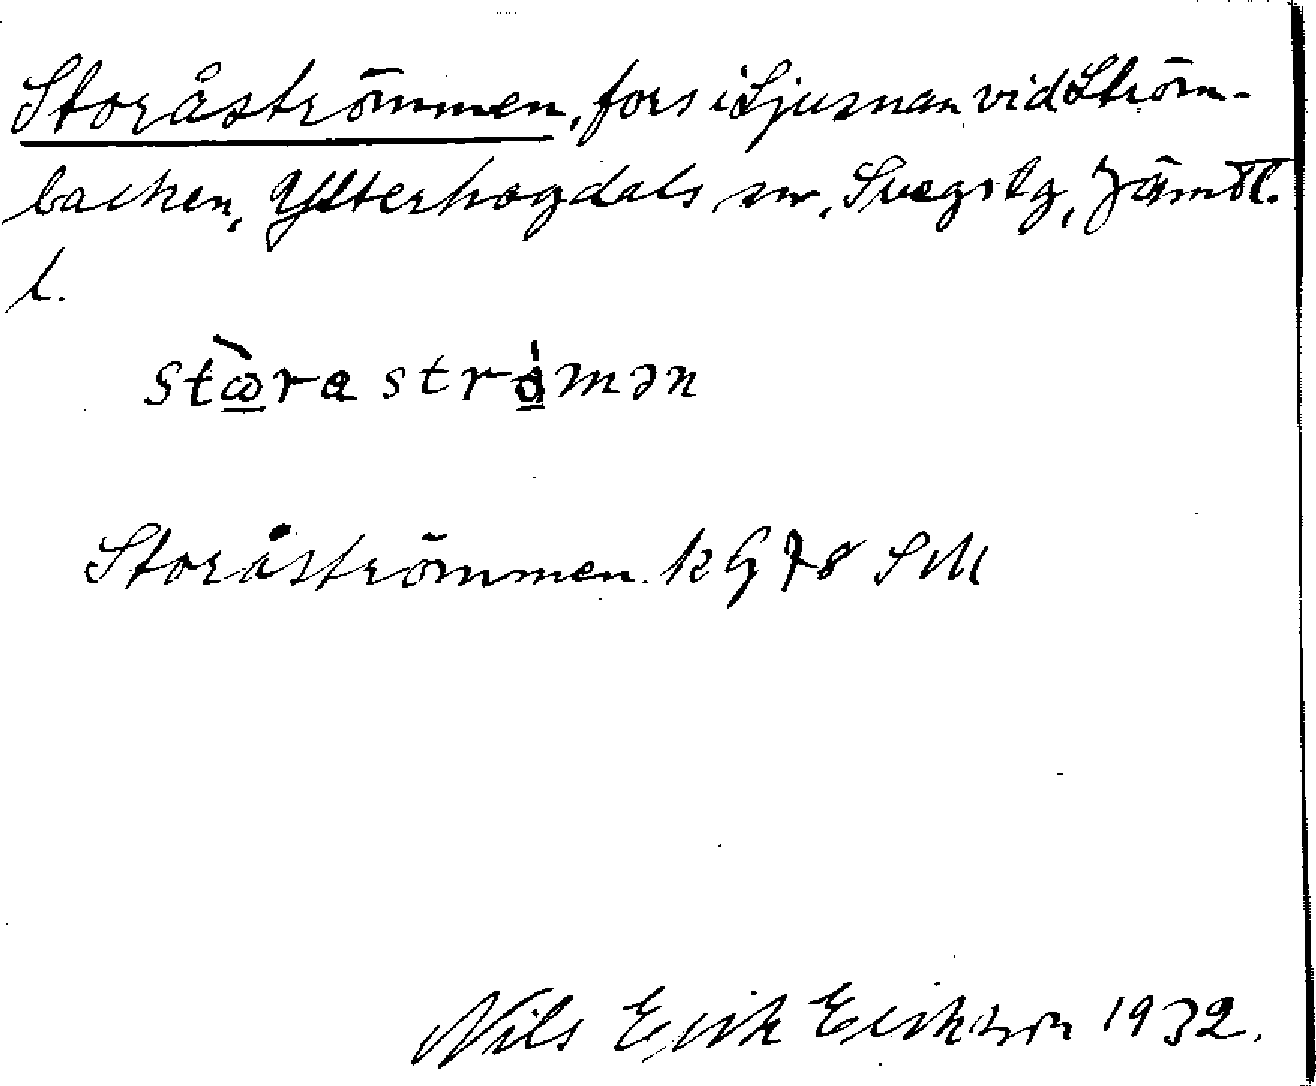 Storåströmmen, fors i Ljusnan vid Ström-
backen, Ytterhogdals sn, Svegs tg, Jämtl.
l.
stωra strȧmən
Storåströmmen. k G 78 SM
Nils Erik Erikson 1932.